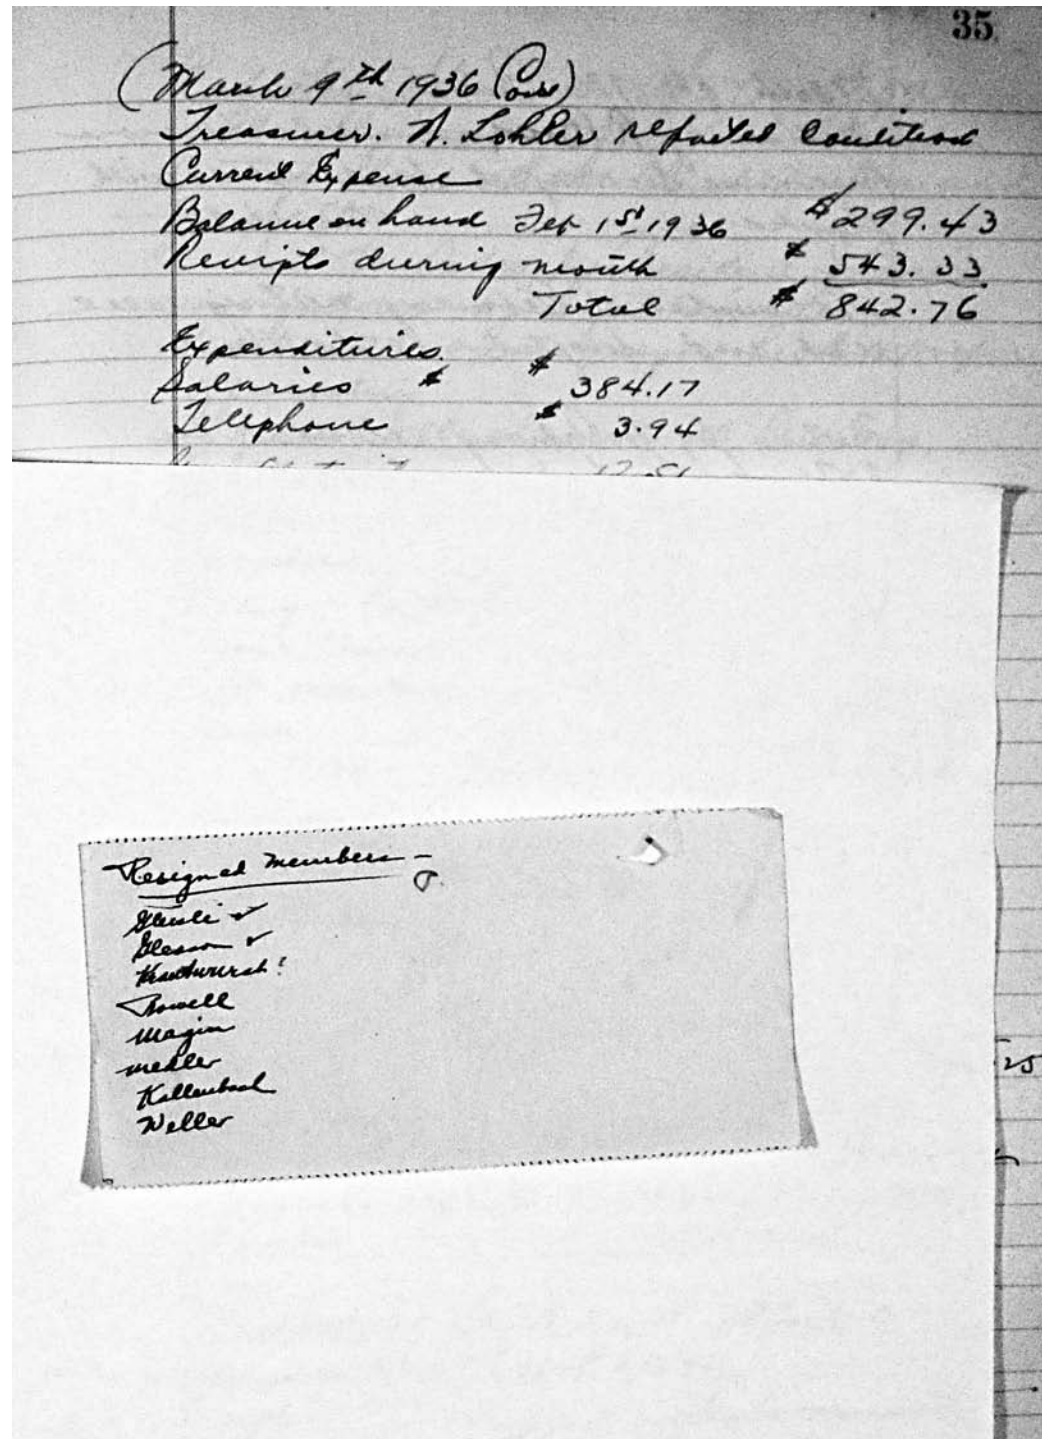 35
(March 9th 1936 Con)
Treasurer. N. Lohler reported Condition
Current Expense
Balance on hand Feb 1st 1936 $299.43
Receipts during month $ 543.33
Total $ 842.76
Expenditures. $
Salaries $ 384.17
Telephone $ 3.94
12.51
Resigned members -
Gleason ✓
Powell
Magin
Mehler
Kallenbach
Weller
25